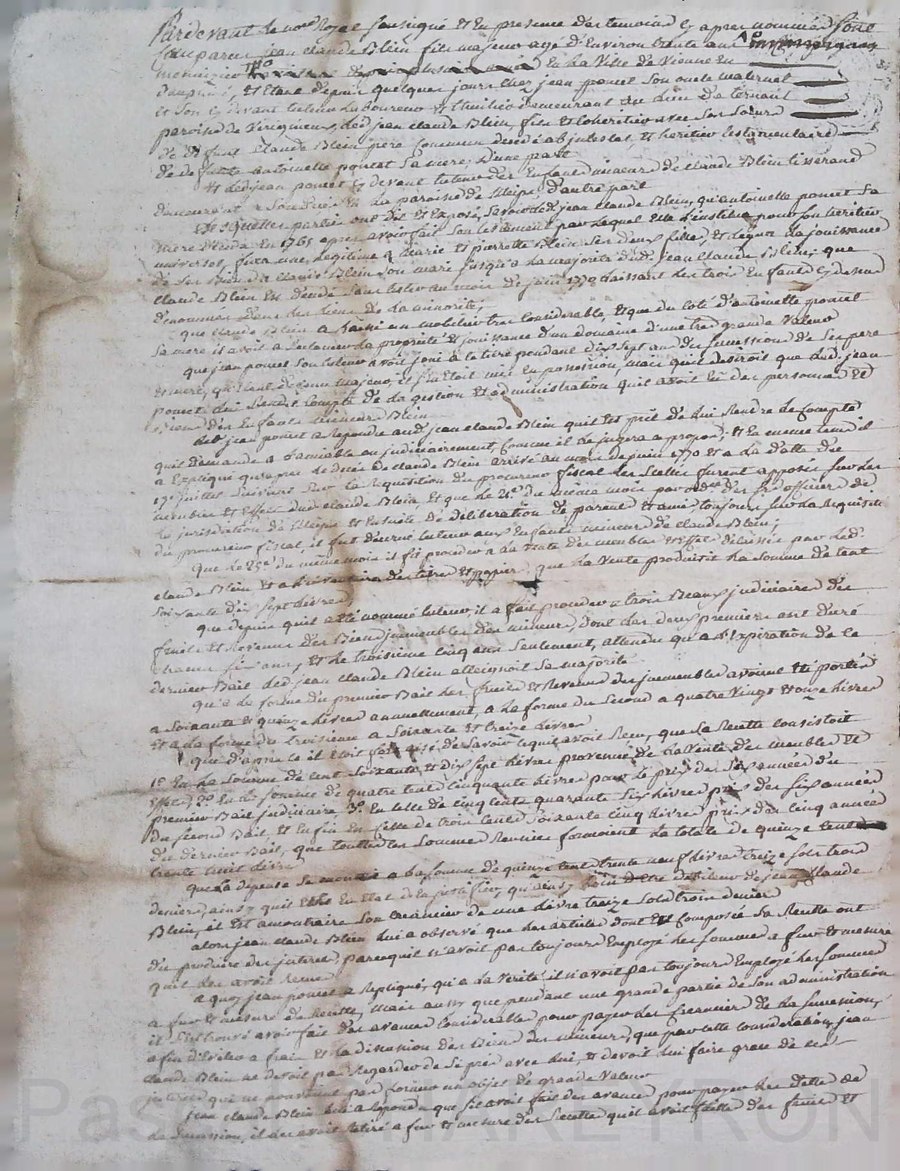 Pardevant le no.re Royal soussigné Et En presence des temoins Cy apres nommés sont
Comparus jean claude Blein fils majeur agé d'Environ trente ans
En La Ville de Vienne En
Dauphiné, et Etant depuis quelques jours chez jean poncet son oncle maternel
et son Cy devant tuteur Laboureur et demeurant au Lieu de ternant
paroisse de Verignieux, led. jean claude Blein, fils et heretier avec ses Soeurs
de defunt Claude Blein pere Commun decedé abjntestat, et heretier testamentaire
de defunte antoinette poncet Sa mere, d'une part
Et led. jean poncet Cy devant tuteur des Enfans mineurs de claude Blein tisserand
demeurant a En La paroisse de d'autre part
Lesquelles parties ont dit et Exposé, Savoir led. jean claude Blein, qu'antoinette poncet sa
mere Deceda En 1765 apres avoir fait son testament par Lequel Elle L'institue pour son heretier
universel, fixa une Legitime a Marie et pierrette Blein Ses deux filles, et Legua La jouissance
de Ses Biens a claude Blein son mari jusqu'a La majorité dud. jean claude Blein, que
Claude Blein Est decedé sans tester au mois de juin 1770 Laissant Les trois Enfants Cy dessus
denommés dans Les Liens de La minorité;
que Claude Blein a Laissé un mobilier tres Considerable, et que du Coté d'antoinette poncet
Sa mere il avoit a La proprieté et jouissance d'un domaine d'une tres grande Valeur
que jean poncet Son tuteur avoit joui a ce titre pendant dix Sept ans de La succession de Ses pere
et mere, qu'Etant devenu majeur, il S'en Etoit mis En possession, mais qu'il desiroit que Led. jean
poncet Lui Rendit Compte de La gestion et administration qu'il avoit Eu des personnes et
Biens des Enfants mineurs Blein
Led. jean poncet a Repondu aud. jean claude Blein qu'il Est prêt de Lui Rendre Le Compte
qu'il demande a L'amiable ou judiciairement, Comme il Le jugera a propos; Et En meme tems il
a Expliqué qu'apres Le deces de claude Blein arrivé au mois de juin 1770 et a La datte du
17e juillet Suivant Sur La Requisition du procureur fiscal Les Scellés furent apposés Sur Les
meubles et Effets dud. claude Blein, Et que Le 21e du meme mois par ord.ce des Srs officiers de
La jurisdiction de Et Ensuite de deliberation de parens et amis toujours Sur La Requisition
du procureur fiscal, il fut decerné tuteur aux Enfants mineurs de claude Blein;
Que Le 25e du meme mois il fit proceder a La Vente des meubles et Effets delaissés par Led.
claude Blein Et a L'inventaire des titres et papiers, que La Vente produisit La Somme de Cent
Soixante dix Sept Livres;
que Depuis qu'il a Eté nommé tuteur il a fait proceder a trois Beaux judiciaires des
fruits et Revenus des Biens jmmeubles des mineurs, dont Les deux premiers ont duré
chacun Six ans, et Le troisieme Cinq ans Seulement, attendu qu'a L'Expiration de ce
dernier Bail Led. jean claude Blein atteignoit Sa majorité
Qu'a La forme du premier Bail Les fruits et Revenus des jmmeubles avoient Eté portés
a Soixante et quinze Livres annuellement, a La forme du Second a quatre Vingt Et onze Livres
Et a La forme du troisieme a Soixante et treize Livres
Que d'apres ce il Etoit fort aisé de Savoir ce qu'il avoit Reçu, que La Recette Consistoit
1° En La Somme de Cent Soixante et dix Sept Livres provenue de La Vente des meubles et
Effets, 2° En La Somme de quatre Cent Cinquante Livres pour Le prix de Six années du
premier Bail judiciaire 3° En Celle de Cinq Cents quarante Six Livres prix des Six années
du Second Bail, et Enfin En Celle de trois Cents Soixante Cinq Livres prix des Cinq années
du dernier Bail, que toutes Les Sommes Reunies formoient Le total de quinze Cent
trente huit Livres
Que La depense Se montoit a La Somme de quinze Cent trente neuf Livres treize Sols trois
deniers, ainsy qu'il Etoit En Etat de justifier, qu'ainsy Loin d'Etre debiteur de jean Claude
Blein, il Est au contraire Son Creancier de une Livre treize Sols trois deniers
alors jean claude Blein Lui a observé que Les articles dont Est Composée Sa Recette ont
du produire des jnterets, parce qu'il n'avoit pas toujours Employé Les Sommes a fur et mesure
qu'il Les avoit Reçues
a quoy jean poncet a Repliqué, qu'a La Verité il n'avoit pas toujours Employé Les Sommes
a fur et mesure de Recette, Mais aussy que pendant une grande partie de Son administration
il S'est trouvé avoir fait des avances Considerables pour payer Les Creanciers de La Succession,
afin d'Eviter a frais et La discussion des Biens des mineurs, que par cette Consideration, jean
claude Blein ne devoit pas Regarder de Si près avec Lui, et devoit Lui faire grace de ces
jnterets qui ne pouvoient pas former un objet de grande Valeur
jean claude Blein Lui a Repondu que S'il avoit fait des avances pour payer Les dettes de
La Succession, il Les avoit Retiré a fur et mesure des Recettes qu'il avoit faites des fruits et
Pascal CHAREYRON